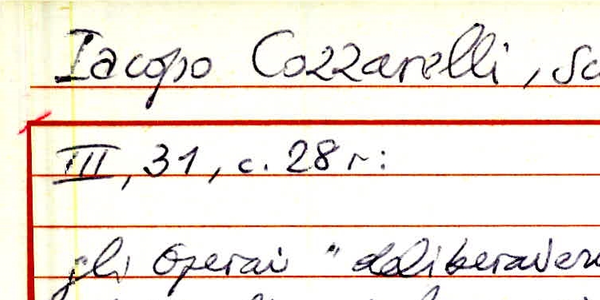 Iacopo Cozzarelli, sc
III, 31, c. 28 r:
gli Operai "deliberaver